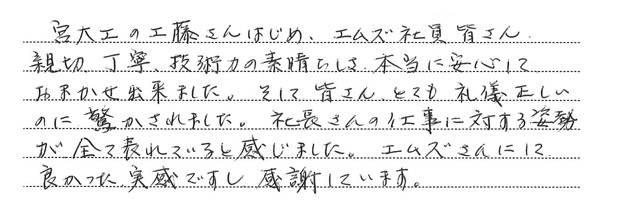 宮大工の工藤さんはじめ、エムズ社員皆さん
親切、丁寧、技術力の素晴らしさ、本当に安心して
おまかせ出来ました。そして皆さん、とても礼儀正しい
のに驚かされました。社長さんの仕事に対する姿勢
が全て表れていると感じました。エムズさんにして
良かった、実感ですし感謝しています。